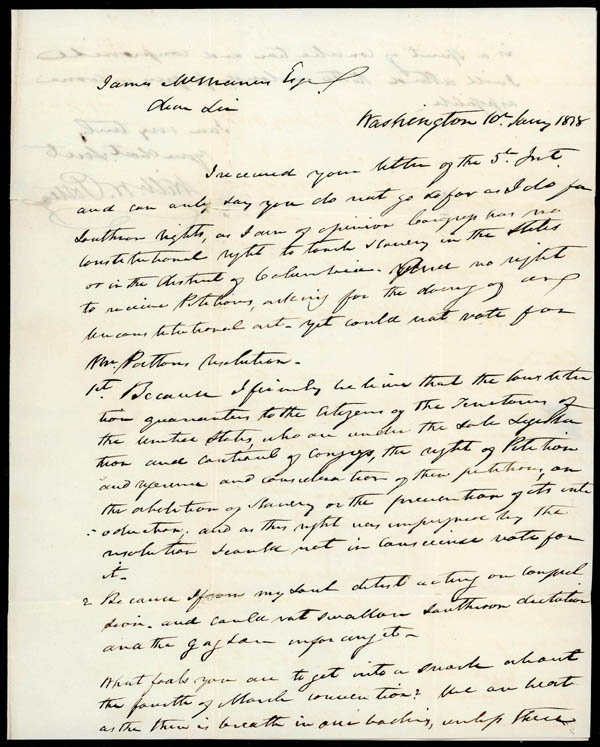 James McManus Esqr
Dear Sir
Washington 10th Jany 1838
I received your letter of the 5th Inst
and can only say you do not go so far as I do for
Southron rights, as I am of opinion Congress has no
Constitutional right to touch slavery in the States
or in the District of Columbia. no right
to receive Petitions, asking for the doing of an
Unconstitutional act - yet could not vote for
Mr. Pattons resolution -
1st. Because I firmly believe that the Constitu
tion guaranties to the Citizens of the Territories of
the United States, who are under the sole Legisla
tion and controul of Congress, the right of Petition
and and consideration of their petitions, on
the abolition of Slavery or the prevention of its intr
oduction, and as this right was impugned by the
resolution I could not in Conscience vote for
it -
2 Because I from my soul detest acting on compul
sion. and could not swallow Southron dictation
and the Gag Law
What fools you are to get into a about
the fourth of March convention? We are beat
as sure as there is breath in our bodies, unless there